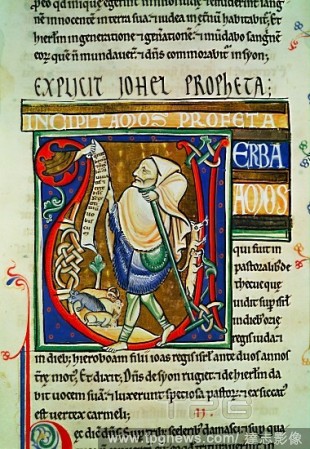 innocentem in terra sua: & iudea inetnū habitabit. &
hierlm in generatione & generatione: & mūdabo sanguinē
eorū quē ñ mundaueram: & dñs commorabit in syon;
EXPLICIT IOHEL PROPHETA;
INCIPIT AMOS PROFETA
VERBA
AMOS
qui fuit in
pastoralib; de
thecue que
uidit sup isrl
in dieb; ozie
regis iuda: &
in dieb; hieroboam filii ioas regis isrl ante duos annos
terre mot'. Et dixit; Dñs de syon rugiet: & de hierlm da
bit uocem suā: & luxerunt speciosa pastorū: & exsiccat'
est uertex carmeli;
II.
Hec dicit dñs; Sup trib; sceleribus damasci: & sup qua
TPG
www.tpgnews.com/達志影像